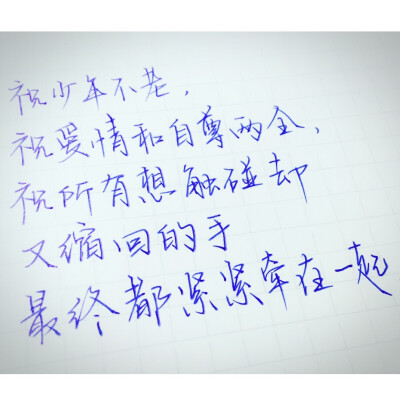 祝少年不老,
祝爱情和自尊两全,
祝所有想触碰却
又缩回的手
最终都紧紧牵在一起